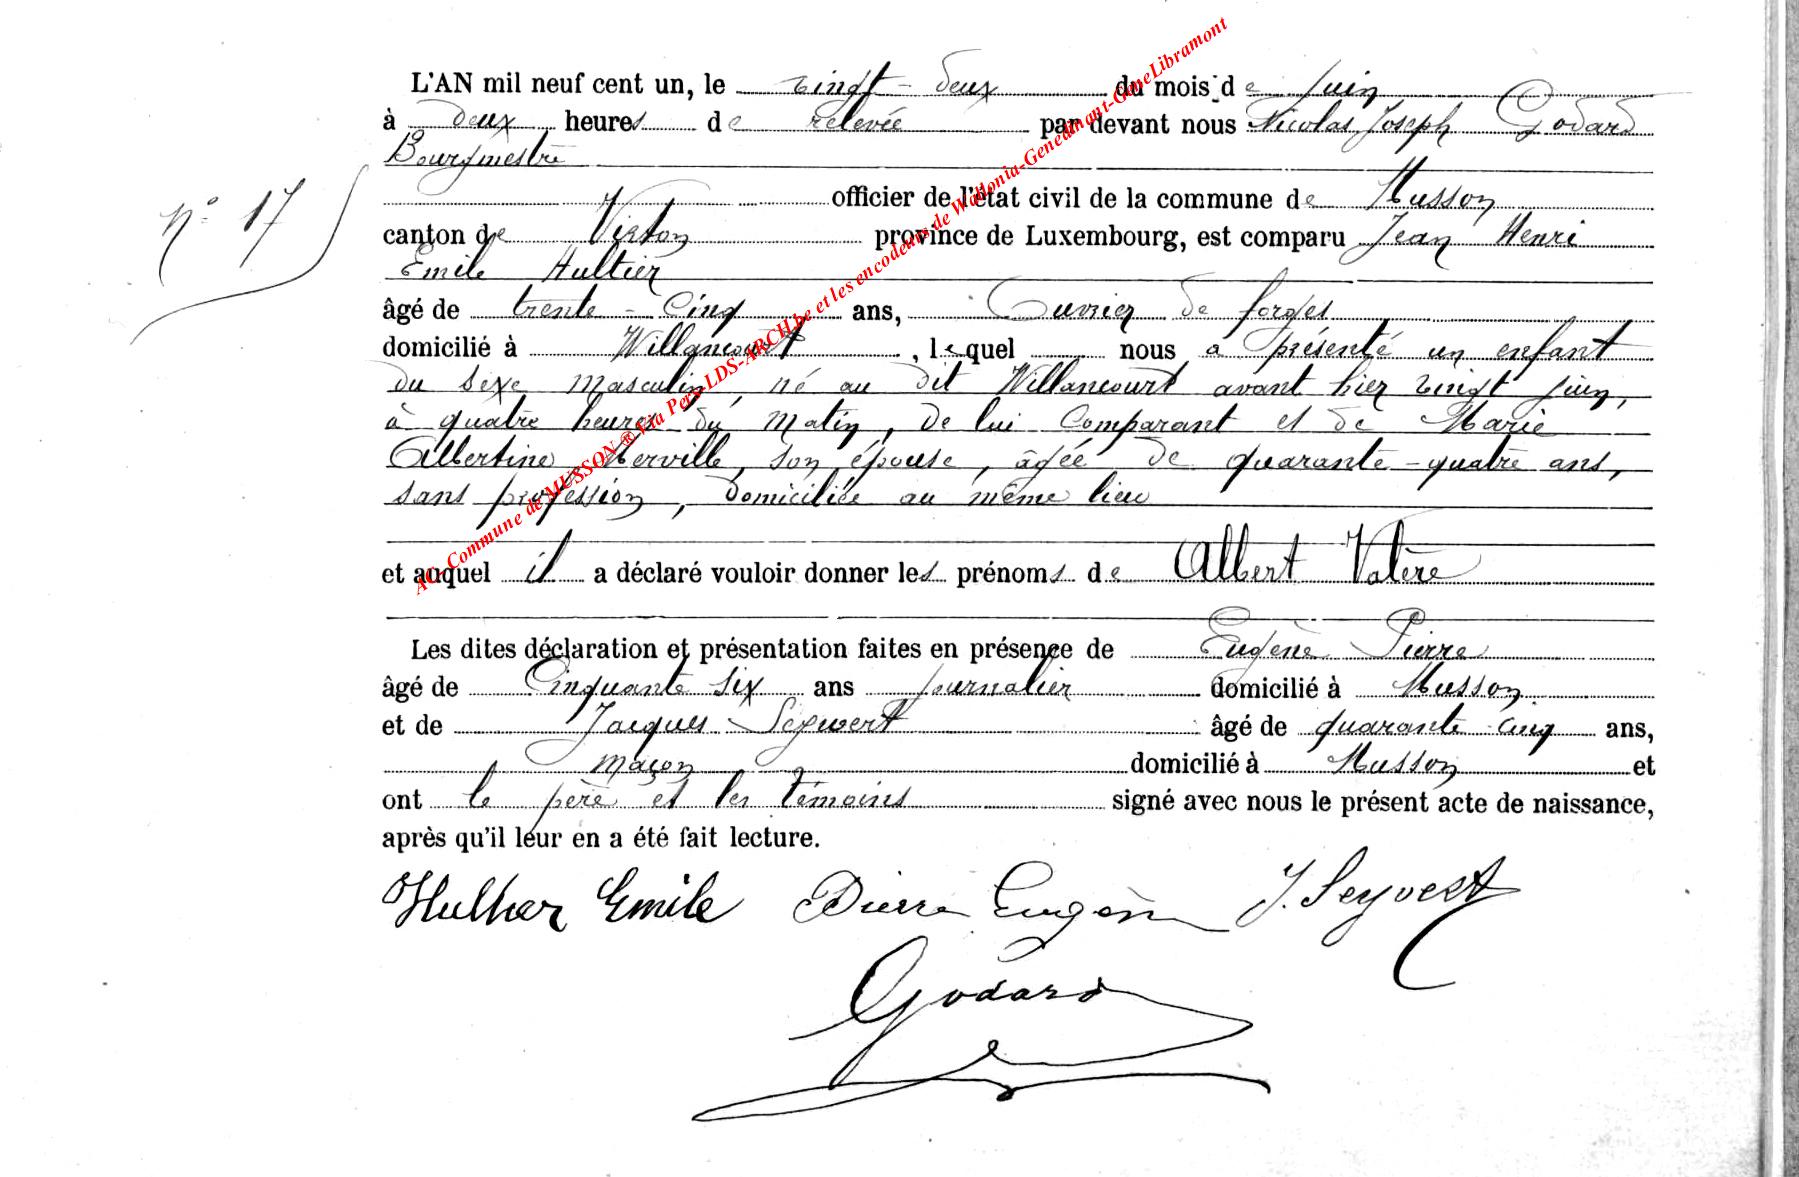 L'AN mil neuf cent un, le vingt-deux du mois de juin
à deux heures de relevée par devant nous Nicolas Joseph Godard
Bourgmestre
N° 17
officier de l'état civil de la commune de Musson
canton de Virton province de Luxembourg, est comparu Jean Henri
Emile
âgé de trente-cinq ans, Ouvrier de forges
domicilié à Willancourt, lequel nous a présenté un enfant
du sexe masculin, né au dit Willancourt avant hier vingt juin,
à quatre heures du matin, de lui comparant et de Marie
Albertine Merville, son épouse, âgée de quarante-quatre ans,
sans profession, domiciliée au même lieu
et auquel il a déclaré vouloir donner les prénoms de Albert Valère
Les dites déclaration et présentation faites en présence de Eugène Pierre
âgé de Cinquante six ans journalier domicilié à Musson
et de Jacques Seywert âgé de quarante-cinq ans,
maçon domicilié à Musson et
ont le père et les témoins signé avec nous le présent acte de naissance,
après qu'il leur en a été fait lecture.
Emile Pierre Eugène J. Seyvert
Godard
AC-Commune de MUSSON ® Via Pers-LDS-ARCH.be et les encodeurs de Wallonia-Genedinant-GeneLibramont